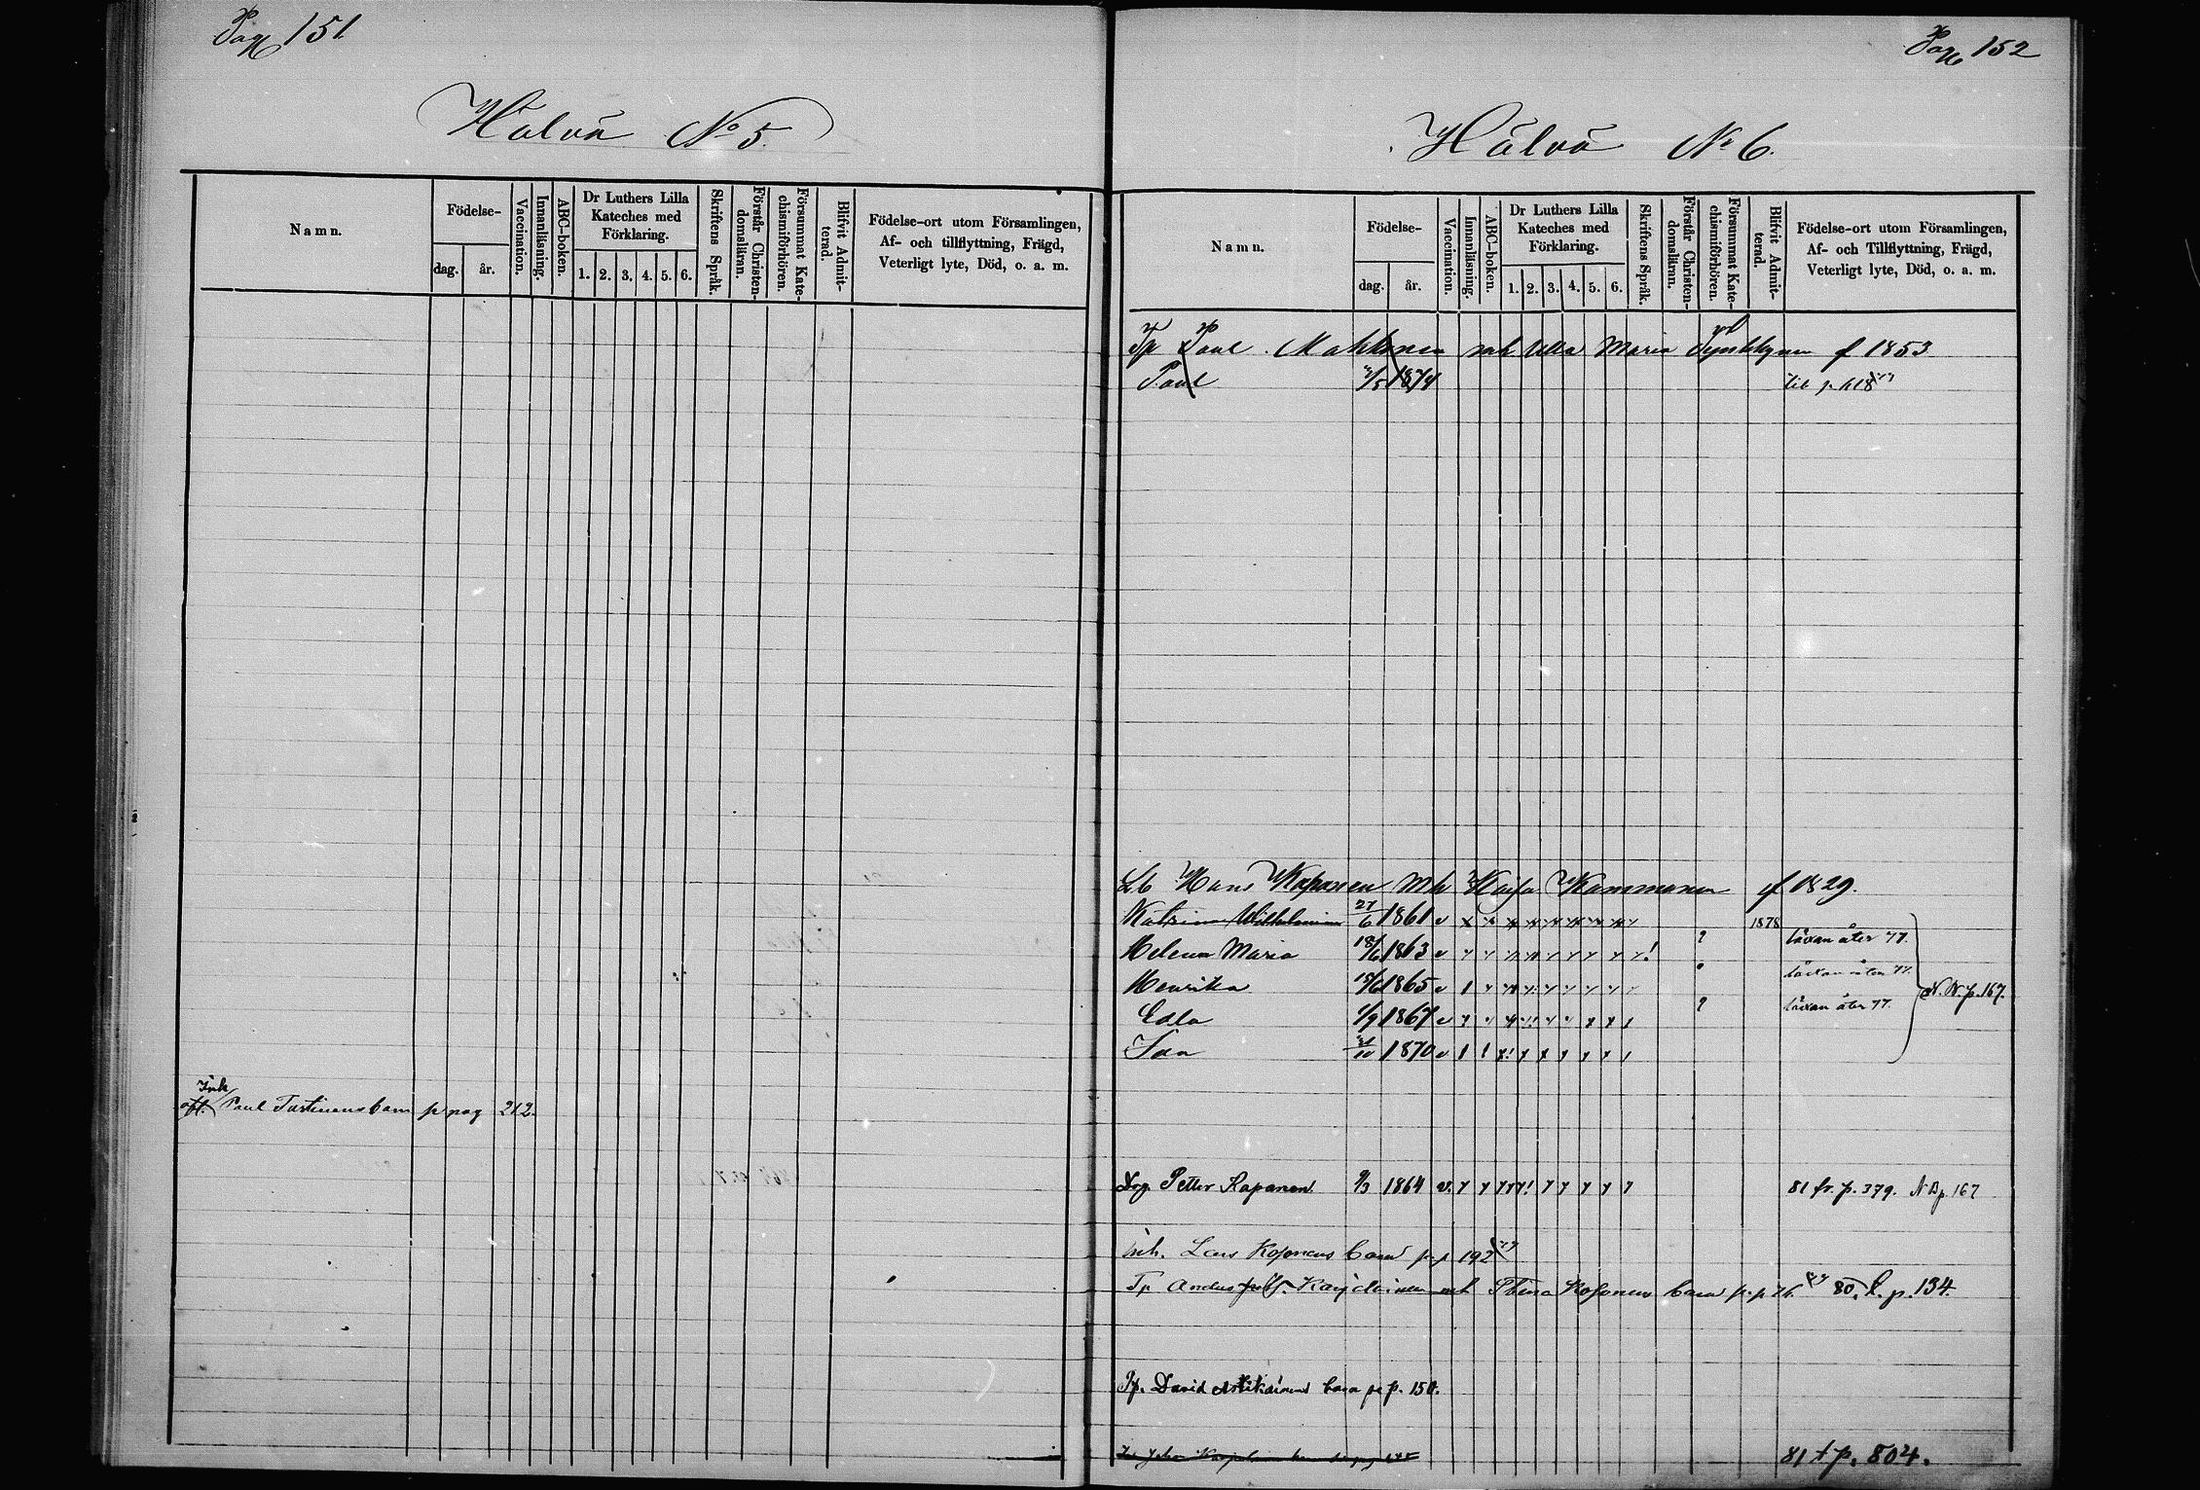 Pag 151.
Hälvä No 5.
Namn.
Födelse-
dag.
år.
Vaccination.
Innanläsning.
ABC-boken.
Dr Luthers Lilla
Kateches med
Förklaring.
1. 2. 3. 4. 5. 6.
Skriftens Språk.
Förstår Christen-
domsläran.
Försummat Kate-
chismiförhören.
Blifvit Admit-
terad.
Födelse-ort utom Församlingen,
Af- och tillflyttning, Frägd,
Veterligt lyte, Död, o. a. m.
Inh
Paul Tartinens barn p pag 212.
Pag 152
Hälvä No 6.
Namn.
Födelse-
dag.
år.
Vaccination.
Innanläsning.
ABC-boken.
Dr Luthers Lilla
Kateches med
Förklaring.
1. 2. 3. 4. 5. 6.
Skriftens Språk.
Förstår Christen-
domsläran.
Försummat Kate-
chismiförhören.
Blifvit Admit-
terad.
Födelse-ort utom Församlingen,
Af- och Tillflyttning, Frägd,
Veterligt lyte, Död, o. a. m.
Tp Paul Mahkonen mh Ulla Maria f 1853
Paul 1874
Lb Hans Kaponen Mh Kaisa Kammonen f 1829.
Katrina Wilhelmina 27/6 1861 v 1878
Helena Maria 18/6 1863 v ? läxan åter 77.
Henrika 18/6 1865 v läxan åter 77. N. B. p. 167.
Edla 1/9 1867 v ? läxan åter 77.
Ida 1870 v
Drg. Petter Kaponen 9/3 1864 v. 81 fr. p. 379. N B p. 167
Inh. Lars Kosonens barn p. p 192
Tp Anders Karjalainen mh Stina Kosonens barn p. p 76. 80. l. p. 134.
Pp. David barn på p. 150.
81 t p. 804.